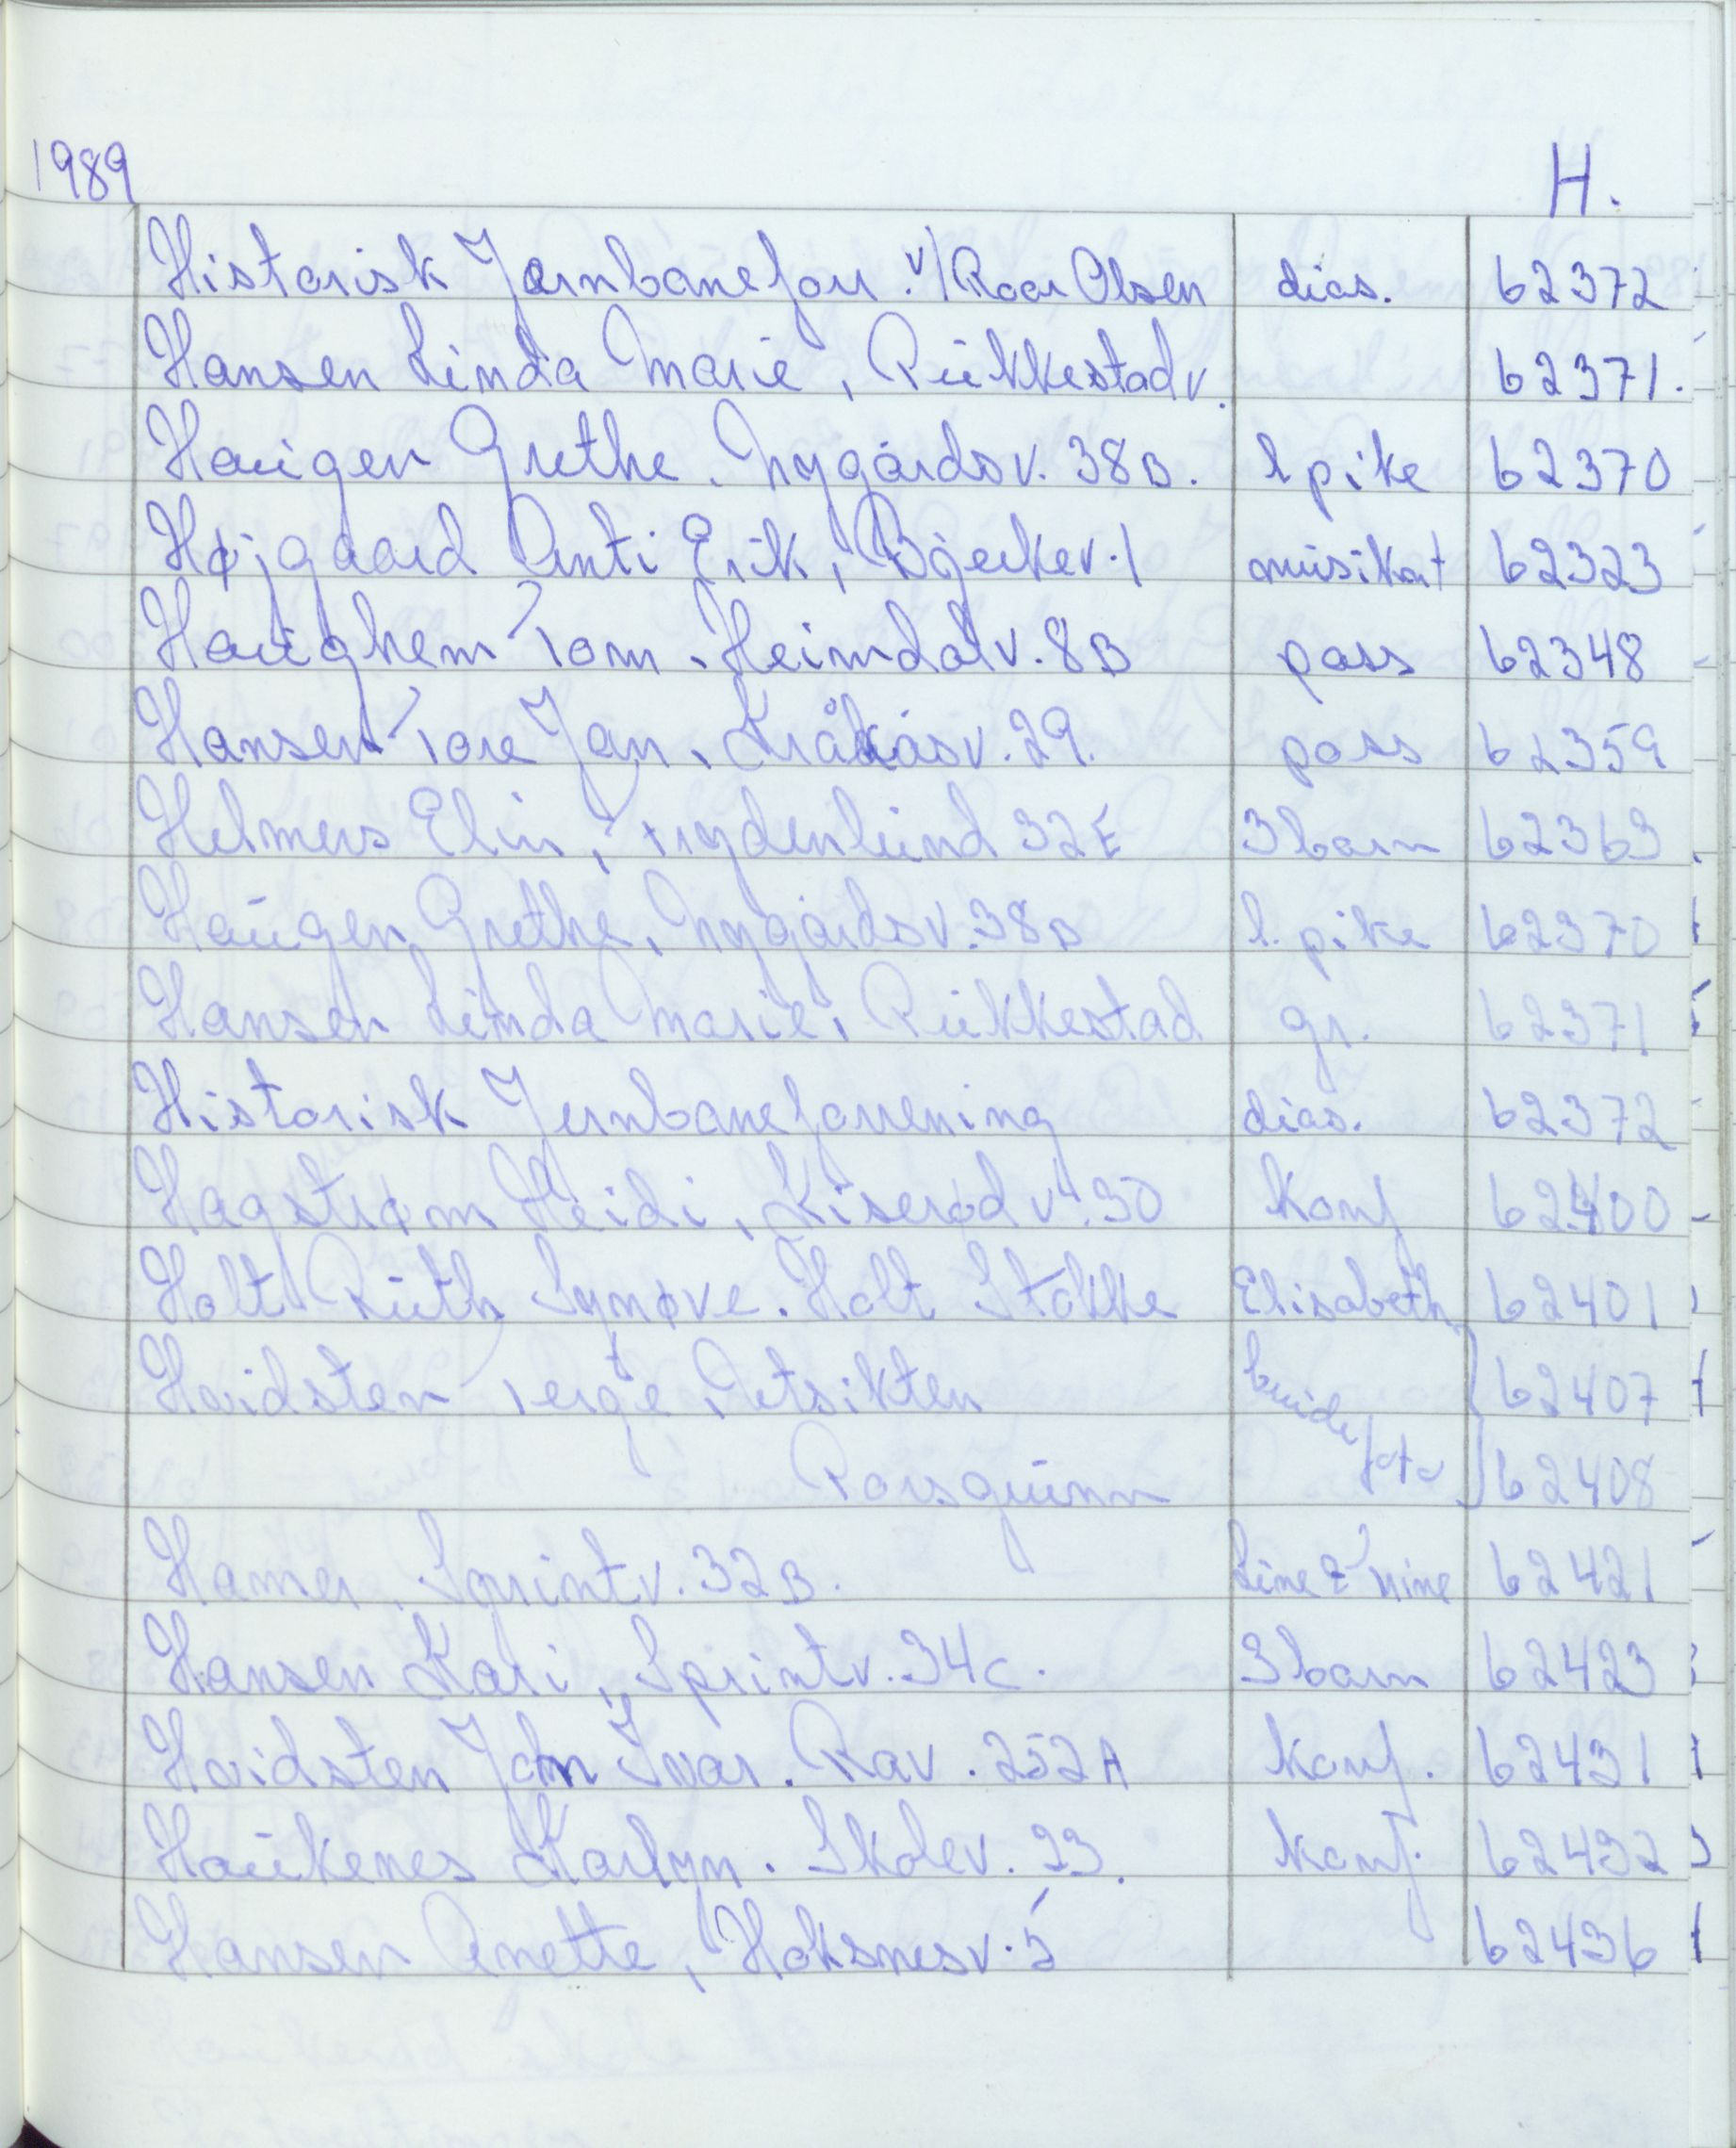 1989 H.
Historisk Jernbanefor. v/Roar Olsen dias. 62372
Hansen Linda Marie, Rukkestadv. 62371.
Haugen Grethe. Nygårdsv. 38B. l pike 62370
Højgaard Anti Erik, Bjerkev. 1 musikat 62323
Haughem Tom. Heimdalv. 8B pass 62348
Hansen Tore Jan. Kråkåsv. 29. pass 62359
Helmers Elin, Frydenlund 32E 3 barn 62363
Haugen Grethe, Nygårdsv. 38B l. pike 62370
Hansen Linda Marie, Rukkestad gr. 62371
Historisk Jernbaneforrening dias. 62372
Hagstrøm Heidi, Kiserød v. 30 Konf 62400
Holt Ruth Synøve. Holt Stokke Elisabeth 62401
Hvidsten Terje, Utsikten brude 62407
Porsgrunn foto 62408
Hamer, Sprintv. 32B. Line & Nine 62421
Hansen Kari, Sprintv. 34c. 3 barn 62423
Hvidsten John Ivar. Rav. 252A Konf. 62431
Haukenes Karlyn. Skolev. 23. Konf. 62432
Hansen Anette, Hoksnesv. 5 62436